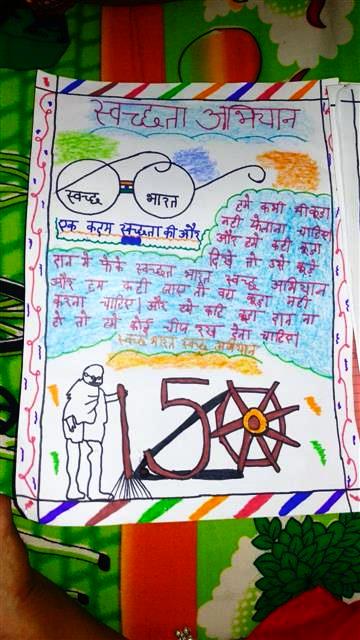 स्वच्छता अभियान
स्वच्छ भारत
एक कदम स्वच्छता की और
हमे कभी भी कुडा
नही फैलाना चाहिए
और हमे कही कुडा
दिखे तो उसे कुडे
दान मे फेके स्वच्छत भारत स्वच्छ अभियान
और हम कही जाए तो वहा कुडा नही
करना चाहिए। और हमे कोई कुडा दान ना
हो तो हमे कोई चीप रख देना चाहिए।
स्वच्छ भारत स्वच्छ अभियान
150